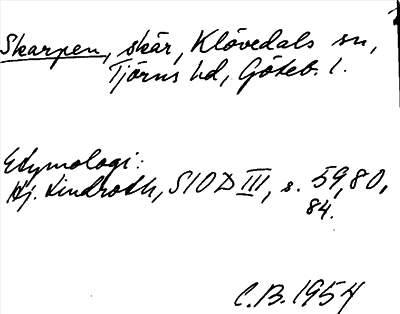 Skarpen, skär, Klövedals sn,
Tjörns hd, Göteb. l.
Etymologi:
Hj. Lindroth, SIOD III, s. 59, 80,
84.
C.B. 1954